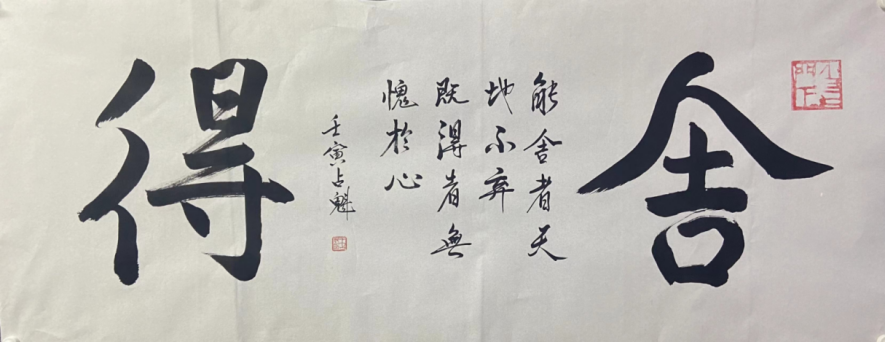 舍
能舍者天
地不弃
既得者無
愧於心
得
壬寅占魁